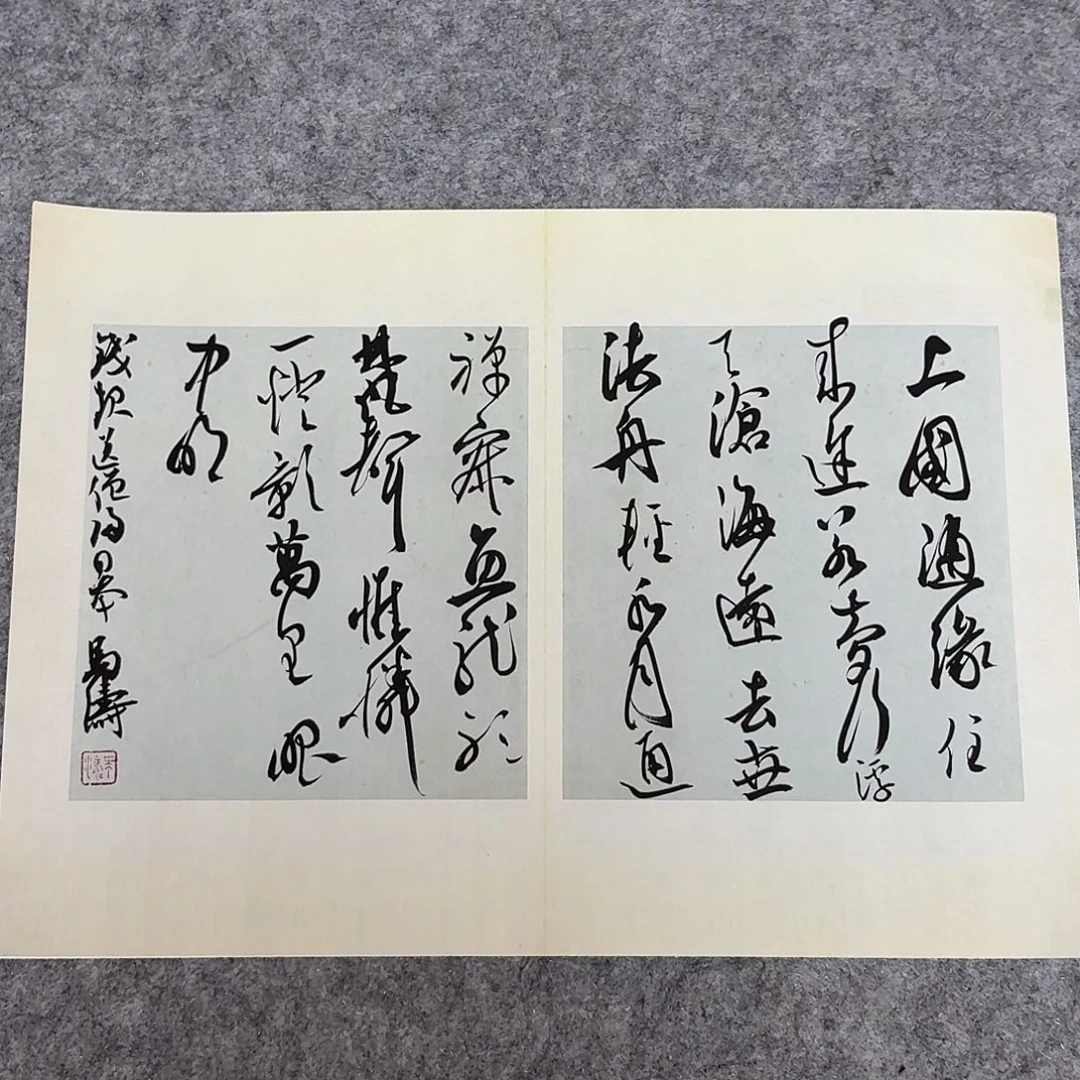 上國隨緣住
來途若夢行浮
天滄海遠去世
法舟輕水月通
禪寂魚龍聽
梵聲惟憐
一燈影萬里眼
中明
錢起送僧歸日本